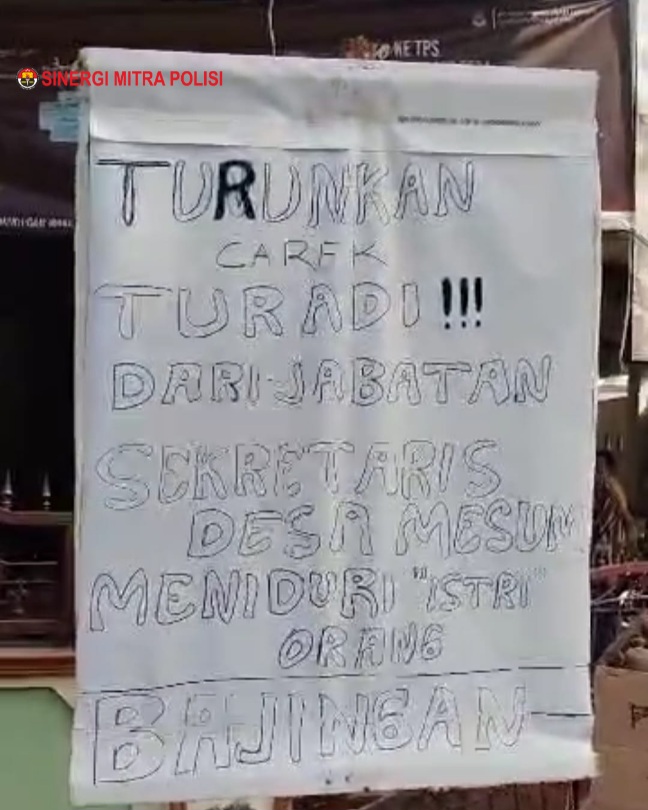 NE TPS
SINERGI MITRA POLISI
TURUNKAN
CAREK
TURADI !!!
DARI JABATAN
SEKRETARIS
DESA MESUM
MENIDURI "ISTRI"
ORANG
BAJINGAN